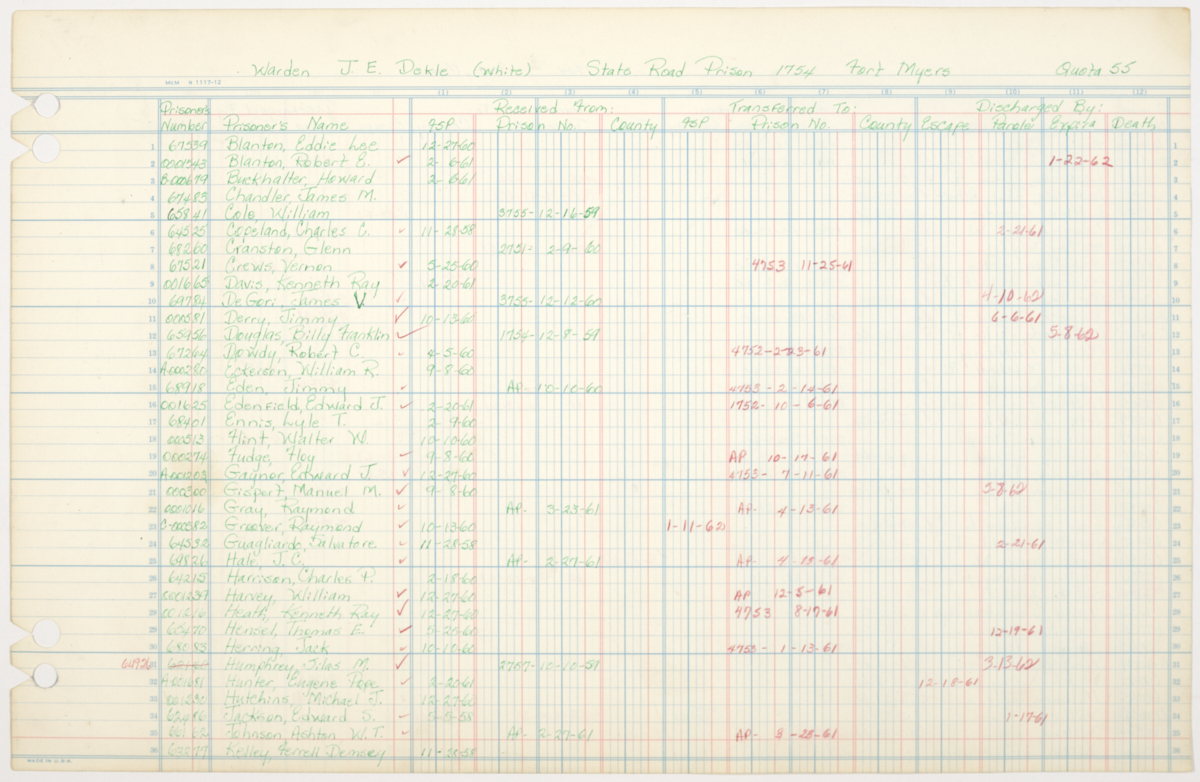 Warden J. E. Dekle (White) State Road Prison 1754 Fort Myers Quota 55
MLM # 1117-12
(1) (2) (3) (4) (5) (6) (7) (8) (9) (10) (11) (12)
Prisoner Received From: Transferred To: Discharged By:
Number Prisoner's Name FSP Prison No. County FSP Prison No. County Escape Parole Expira Death
1 67539 Blanton, Eddie Lee 12-27-60 1
2 0001543 Blanton, Robert E. ✓ 2-6-61 1-22-62 2
3 B-000679 Buckhalter, Howard 2-6-61 3
4 67483 Chandler, James M. 4
5 65841 Cole, William 3755-12-16-59 5
6 64525 Copeland, Charles C. ✓ 11-28-58 2-21-61 6
7 68260 Cranston, Glenn 2751- 2-9-60 7
8 67521 Crews, Vernon ✓ 5-25-60 4753 11-25-61 8
9 001665 Davis, Kenneth Ray 2-20-61 9
10 69784 DeGori, James V. ✓ 3755-12-12-60 4-10-62 10
11 000581 Derry, Jimmy ✓ 10-13-60 6-6-61 11
12 65956 Douglas, Billy Franklin ✓ 1754-12-8-59 5-8-62 12
13 67244 Dowdy, Robert C. ✓ 4-5-60 4752-2-23-61 13
14 A-000280 Eckerson, William R. 9-8-60 14
15 68918 Eden, Jimmy ✓ AP- 10-10-60 4753-2-14-61 15
16 001625 Edenfield, Edward J. ✓ 2-20-61 1752-10-6-61 16
17 68401 Ennis, Lyle T. 2-9-60 17
18 000513 Flint, Walter W. 10-10-60 18
19 000274 Fudge, Floy ✓ 9-8-60 AP 10-17-61 19
20 A-001202 Gaynor, Edward J. ✓ 12-27-60 4753- 7-11-61 20
21 000300 Gispert, Manuel M. ✓ 9-8-60 5-8-62 21
22 0001016 Gray, Raymond ✓ AP- 3-23-61 AP- 4-13-61 22
23 C-000582 Groover, Raymond ✓ 10-13-60 1-11-62 23
24 64532 Guagliardo, Salvatore ✓ 11-28-58 2-21-61 24
25 69826 Hale, J.C. ✓ AP- 2-27-61 AP- 4-13-61 25
26 64215 Harrison, Charles P. 2-18-60 26
27 0001239 Harvey, William ✓ 12-27-60 AP 12-5-61 27
28 001216 Heath, Kenneth Ray ✓ 12-27-60 4753 8-17-61 28
29 60470 Hensel, Thomas E. ✓ 5-25-60 12-19-61 29
30 68083 Herring, Jack ✓ 10-10-60 4753-1-13-61 30
31 Humphrey, Silas M. ✓ 2757-10-10-59 3-13-62 31
32 Hunter, Eugene Pope ✓ 2-20-61 12-18-61 32
33 001230 Hutchins, Michael J. 12-27-60 33
34 Jackson, Edward S. ✓ 5-5-58 1-17-61 34
35 Johnson, Ashton W. T. ✓ AP- 2-27-61 AP- 8-28-61 35
36 Kelley, Ferrell Demsey 11-28-58 36
MADE IN U.S.A.